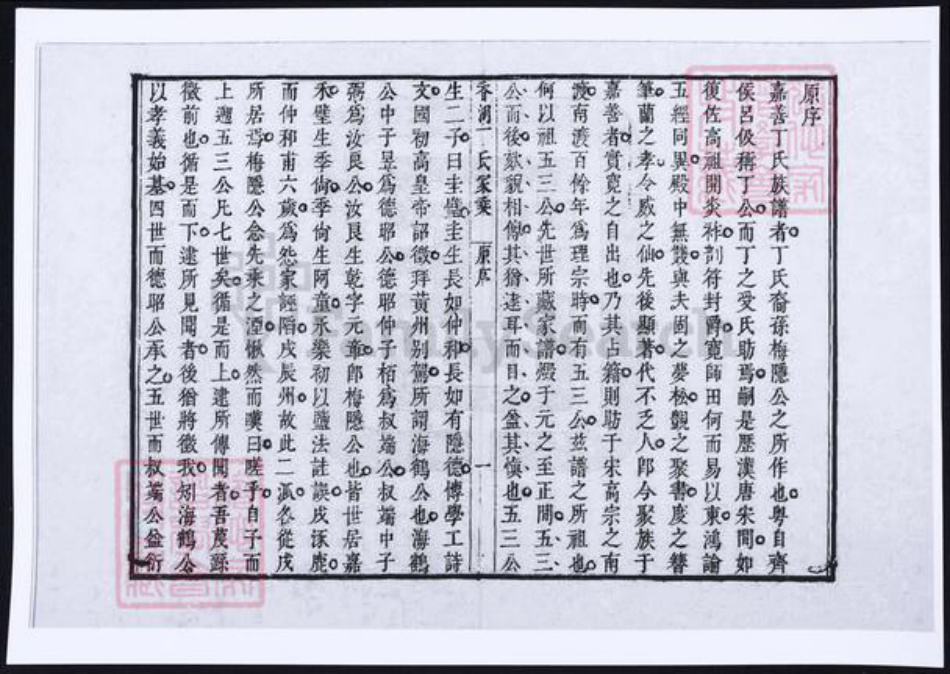 原序
嘉善丁氏族譜者丁氏裔孫梅隱公之所作也粤自齊
侯呂伋稱丁公而丁之受氏昉焉嗣是歷漢唐宋間如
復佐高祖開炎祚剖符封爵寬師田何而易以東鴻論
五經同異殿中無雙與夫固之夢松覬之聚書度之簪
筆蘭之孝令威之仙先後顯著代不乏人卽今聚族于
嘉善者實寬之自出也乃其占籍則昉于宋高宗之南
渡南渡百餘年爲理宗時而有五三公茲譜之所祖也
何以祖五三公先世所藏家譜燬于元之至正間五三
公而後獃貌相傳其猶逮耳而目之益其愼也五三公
香湖丁氏家乘 原序 一
生二子曰圭曰壁圭生長如仲和長如有隱德博學工詩
文國初高皇帝詔徵拜黄州别駕所謂海鶴公也海鶴
公中子昱爲德昭公德昭仲子栢爲叔端公叔端中子
弼爲汝艮公汝艮生乾字元章卽梅隱公也皆世居嘉
禾璧生季尙季尙生阿童永樂初以鹽法詿誤戍涿鹿
而仲和甫六歲爲怨家誣陷戍辰州故此二派各從戍
所居焉梅隱公念先乘之湮愀然而嘆曰嗟乎自子而
上遡五三公凡七世矣循是而上逮所傳聞者吾蔑繇
徵前也循是而下逮所見聞者後猶將徵我矧海鶴公
以孝義始基四世而德昭公承之五世而叔端公益衍